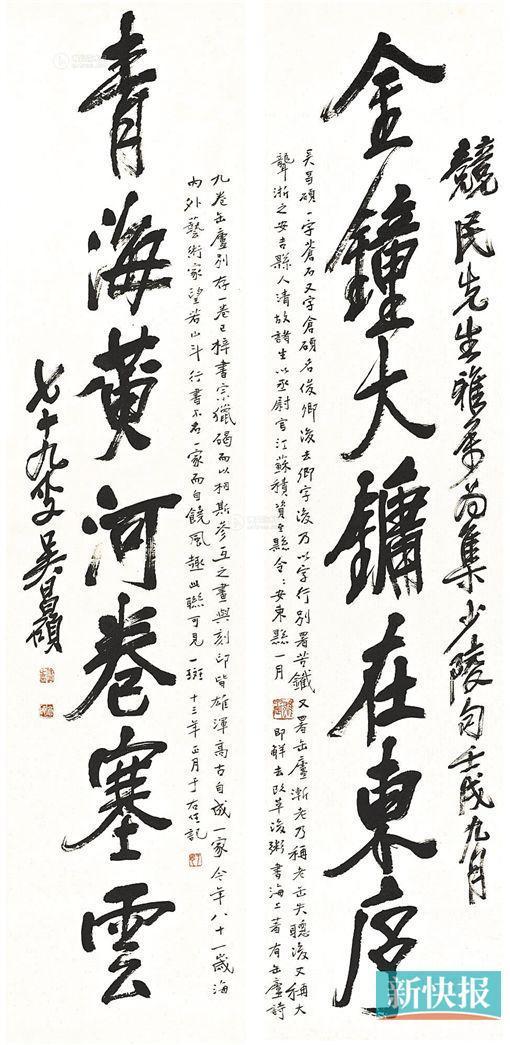 競民先生雅屬為集少陵句壬戌九月
金鐘大鏞在東序
吳昌碩一字蒼石又字倉碩名俊卿後去卿字後乃以字行別署苦鐵又署缶廬漸老乃稱老缶失聰後又稱大
聾浙之安吉縣人清故諸生以丞尉官江蘇積資至縣令：安東縣一月即解去改革後粥書海上著有缶廬詩
九卷缶廬別存一卷已梓書宗獵碣而以相斯參互之畫與刻印皆雄渾高古自成一家今年八十一歲海
內外藝術家望若山斗行書不名一家而自饒風趣此聯可見一斑十三年正月于右任記
青海黃河卷塞雲
七十九叟吳昌碩
新快报